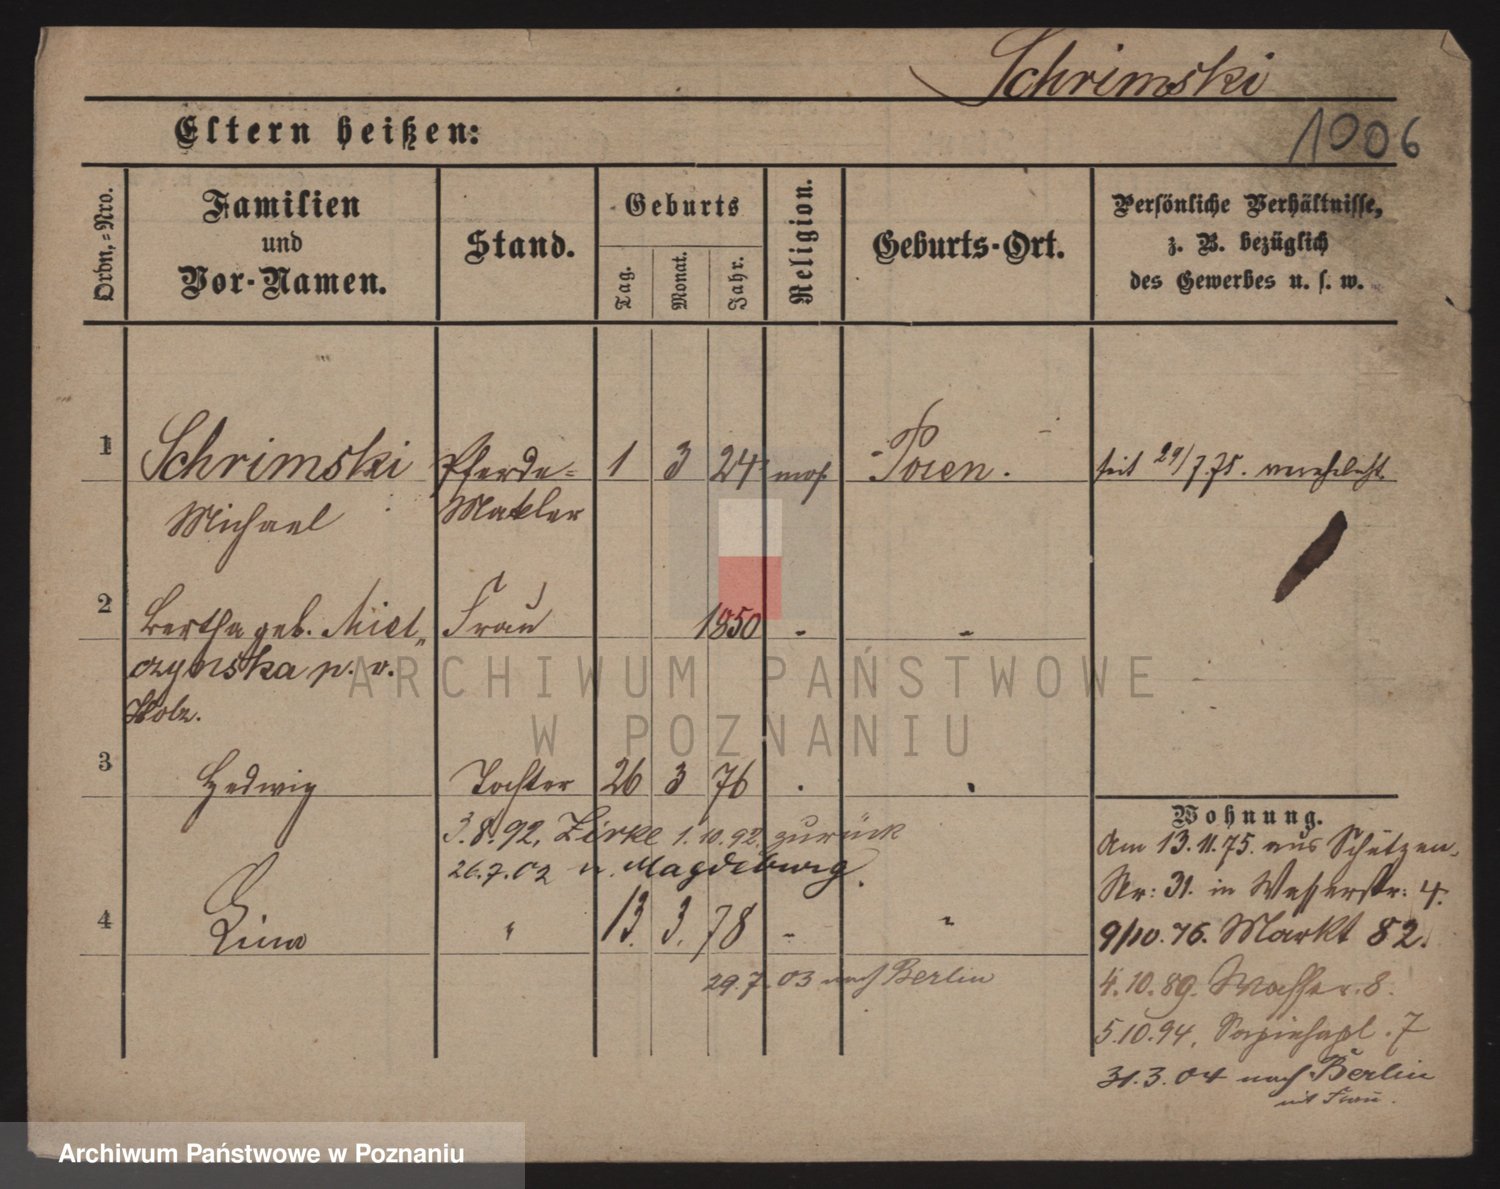 Schrimski
1006
Eltern heißen:
Ordn.-Nro.
Familien
und
Vor-Namen.
Stand.
Geburts
Tag.
Monat.
Jahr.
Religion.
Geburts-Ort.
Persönliche Verhältnisse,
z. B. bezüglich
des Gewerbes u. s. w.
1 Schrimski Pferde- 1 3 24 mos. Posen. seit 29/7.75. verehelicht
Michael Makler
2 Bertha geb. Miel- Frau 1850 - -
czynska
3 Hedwig Tochter 26 3 76
3.8.92. Zirke 1.10.92. zurück
26.7.02 n. Magdeburg.
4 Lina " 13. 3. 78 - "
29.7.03 nach Berlin
Wohnung.
Am 13.11.75. aus Schützen-
Str: 31. in Wasserstr: 4.
9/10.76. Markt 82.
4.10.89. Wasser. 8.
5.10.94. Sapiehapl. 7
31.3.04 nach Berlin
mit Frau.
ARCHIWUM PAŃSTWOWE
W POZNANIU
Archiwum Państwowe w Poznaniu